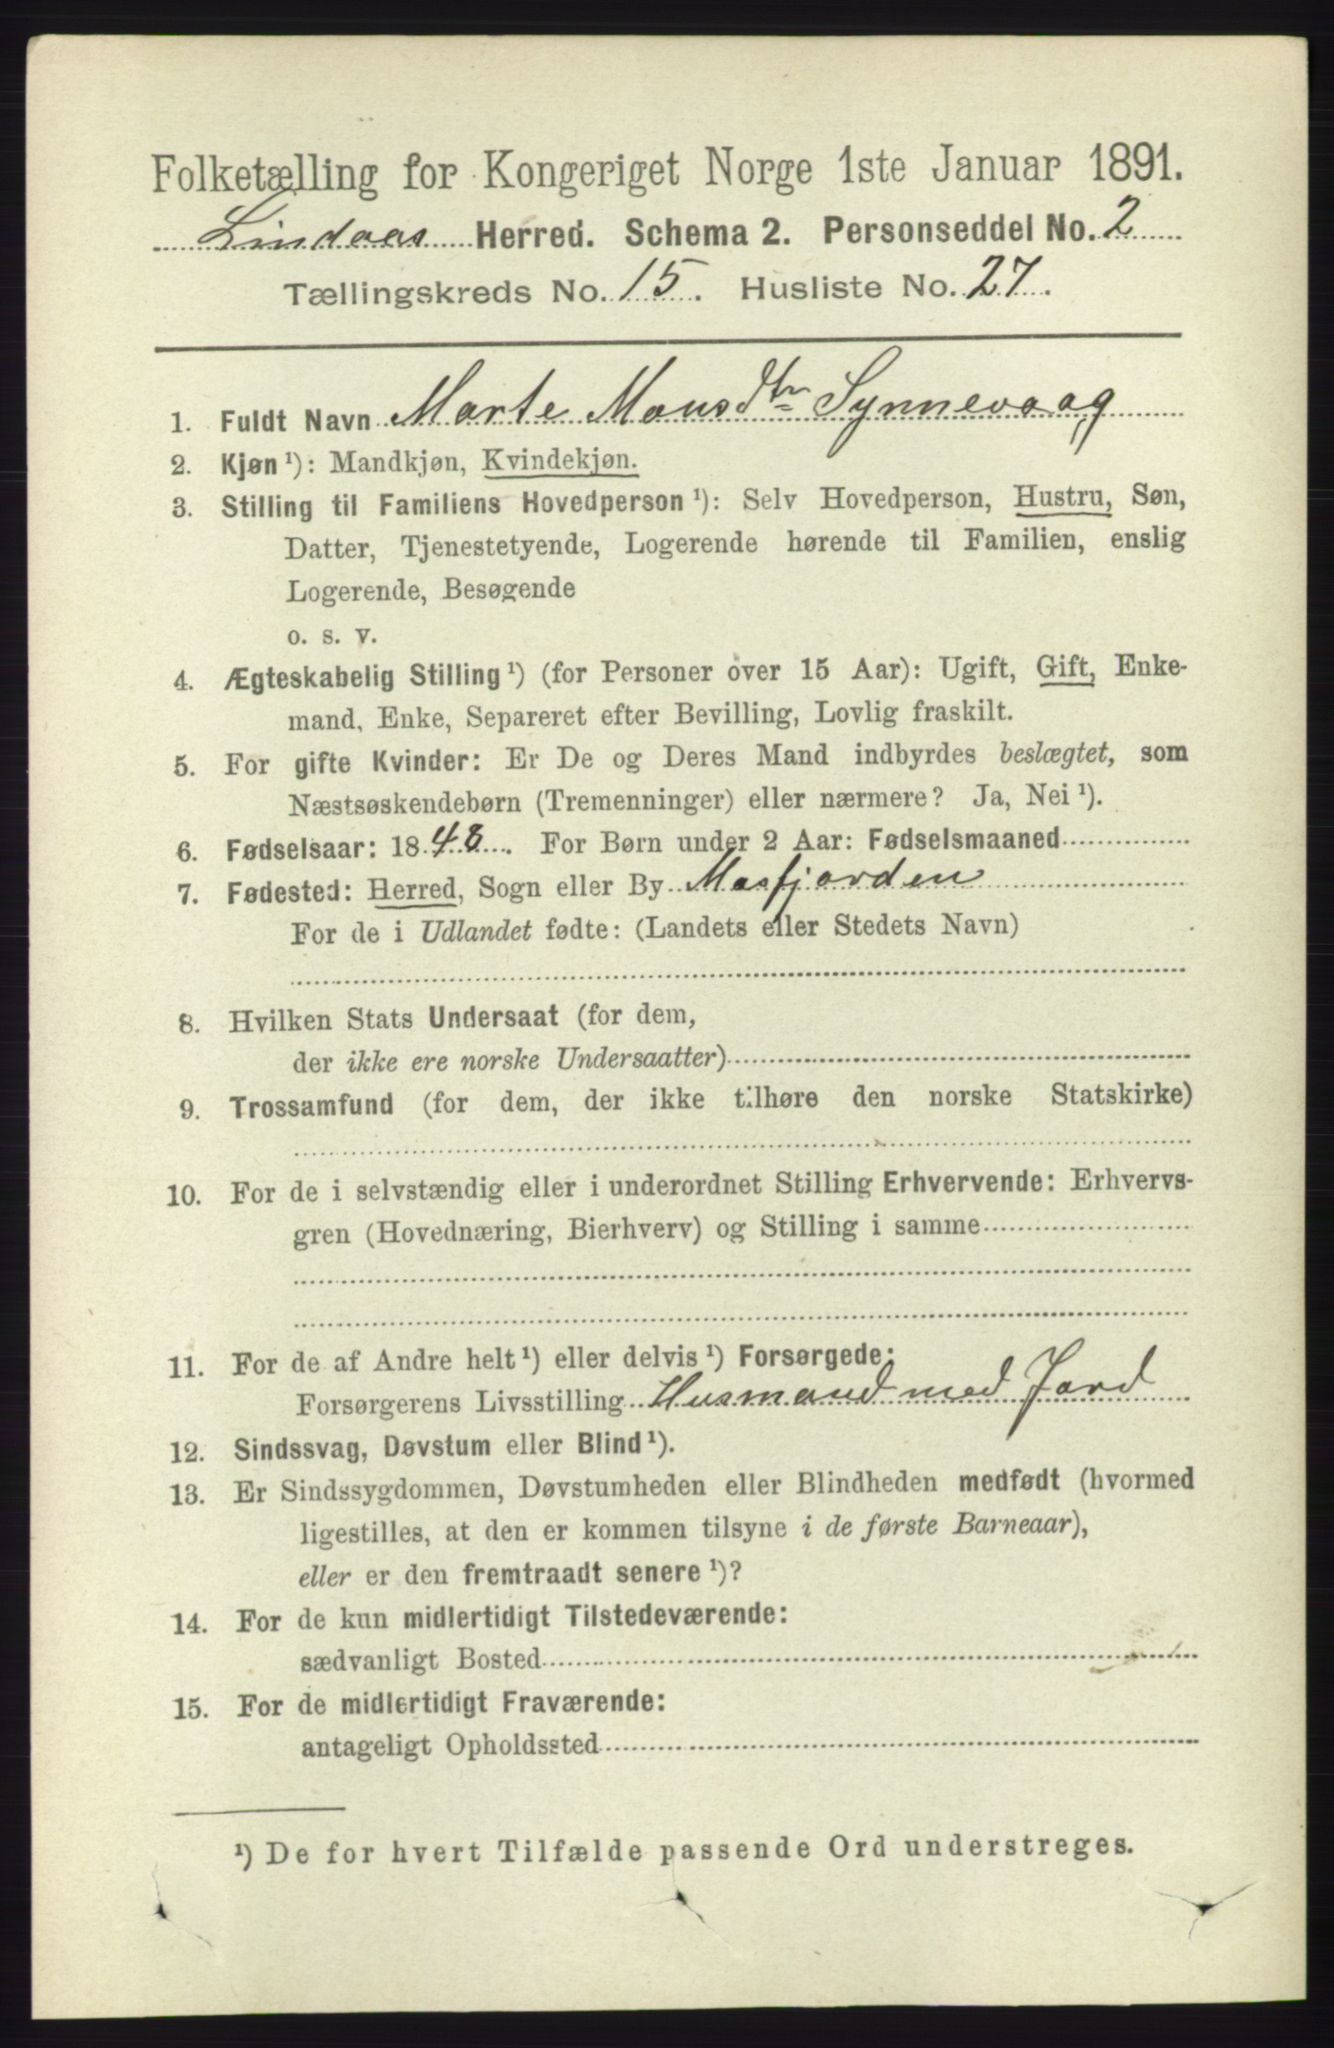 Folketælling for Kongeriget Norge 1ste Januar 1891.
Lindaas Herred. Schema 2. Personseddel No. 2
Tællingskreds No. 15. Husliste No. 27.
1. Fuldt Navn Marte Mons Dtr Synnevaag
2. Kjøn ¹): Mandkjøn, Kvindekjøn.
3. Stilling til Familiens Hovedperson ¹): Selv Hovedperson, Hustru, Søn,
Datter, Tjenestetyende, Logerende hørende til Familien, enslig
Logerende, Besøgende
o. s. v.
4. Ægteskabelig Stilling ¹) (for Personer over 15 Aar): Ugift, Gift, Enke-
mand, Enke, Separeret efter Bevilling, Lovlig fraskilt.
5. For gifte Kvinder: Er De og Deres Mand indbyrdes beslægtet, som
Næstsøskendebørn (Tremenninger) eller nærmere? Ja, Nei ¹).
6. Fødselsaar: 1848. For Børn under 2 Aar: Fødselsmaaned
7. Fødested: Herred, Sogn eller By Masfjorden
For de i Udlandet fødte: (Landets eller Stedets Navn)
8. Hvilken Stats Undersaat (for dem,
der ikke ere norske Undersaatter)
9. Trossamfund (for dem, der ikke tilhøre den norske Statskirke)
10. For de i selvstændig eller i underordnet Stilling Erhvervende: Erhvervs-
gren (Hovednæring, Bierhverv) og Stilling i samme
11. For de af Andre helt ¹) eller delvis ¹) Forsørgede:
Forsørgerens Livsstilling Husmand med Jord
12. Sindssvag, Døvstum eller Blind ¹).
13. Er Sindssygdommen, Døvstumheden eller Blindheden medfødt (hvormed
ligestilles, at den er kommen tilsyne i de første Barneaar),
eller er den fremtraadt senere ¹)?
14. For de kun midlertidigt Tilstedeværende:
sædvanligt Bosted
15. For de midlertidigt Fraværende:
antageligt Opholdssted
¹) De for hvert Tilfælde passende Ord understreges.